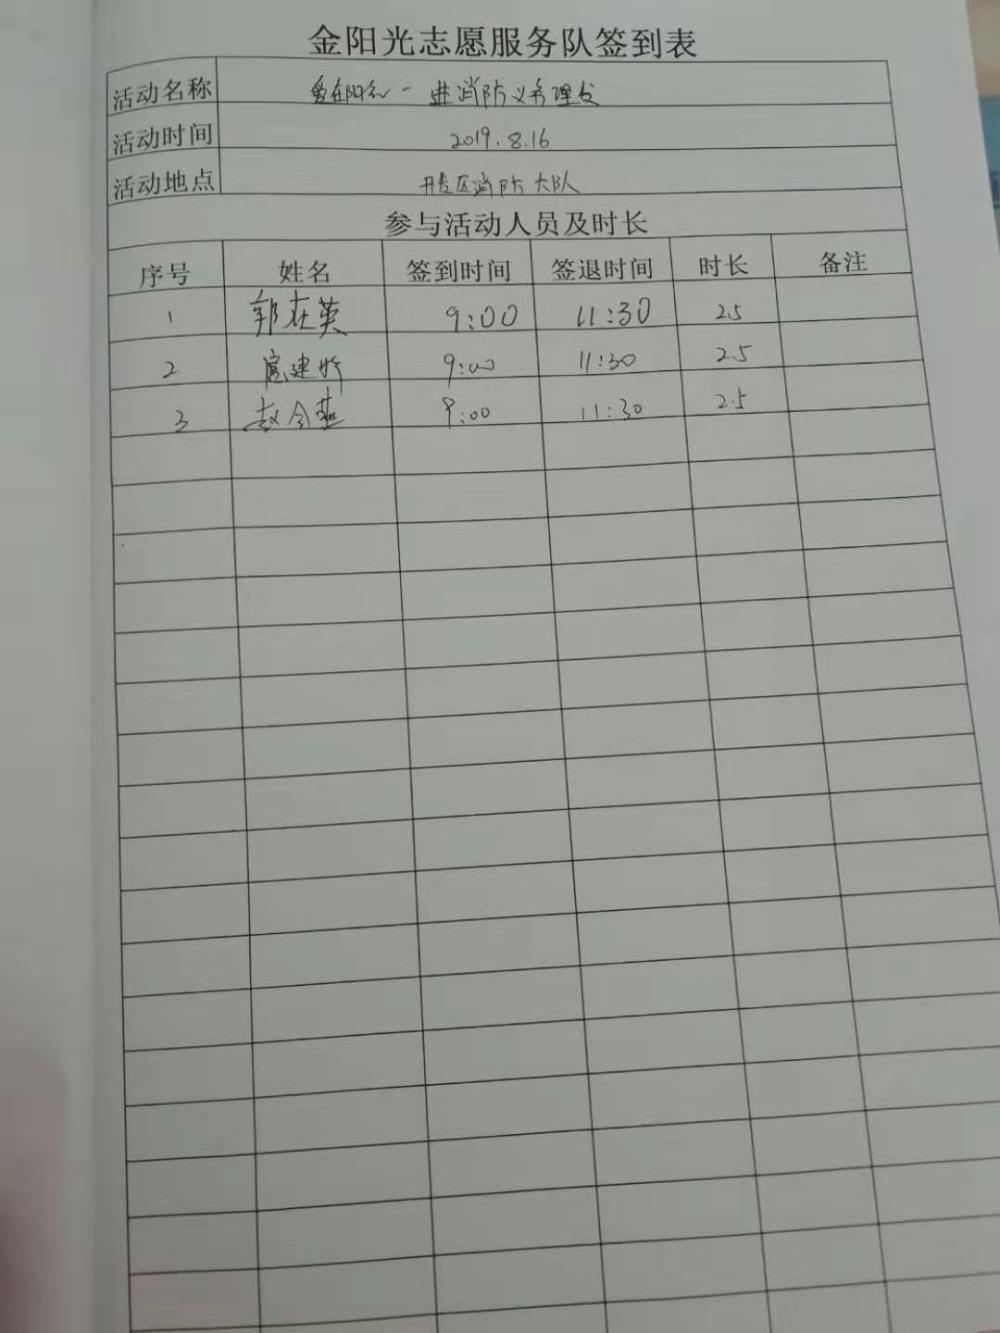 金阳光志愿服务队签到表
活动名称 进消防义务理发
活动时间 2019.8.16
活动地点 开发区消防大队
参与活动人员及时长
序号 姓名 签到时间 签退时间 时长 备注
1 郭在英 9:00 11:30 2.5
2 9:00 11:30 2.5
3 赵令燕 9:00 11:30 2.5